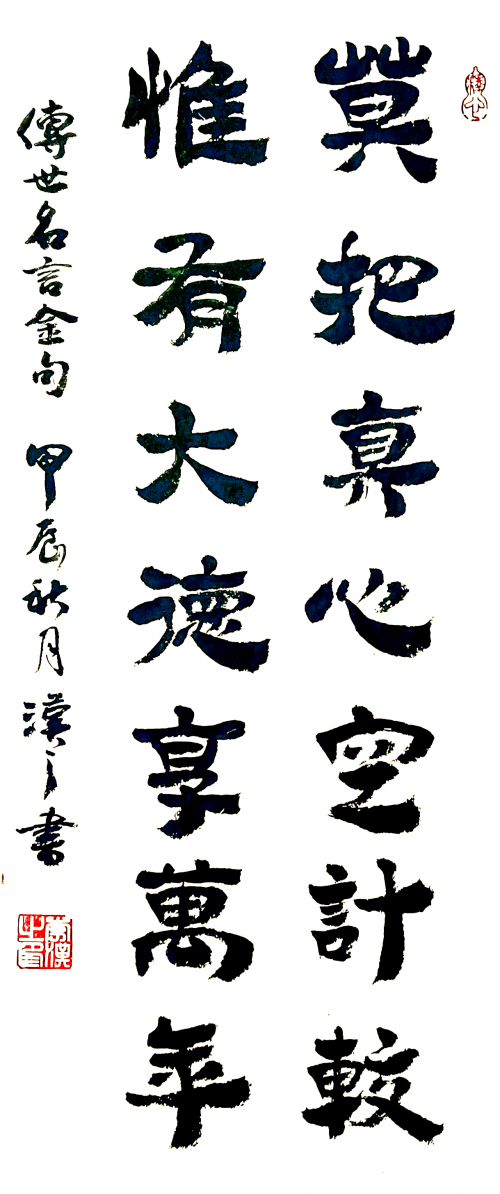 莫把真心空計較
惟有大德享萬年
傳世名言金句 甲辰秋月 漢之書